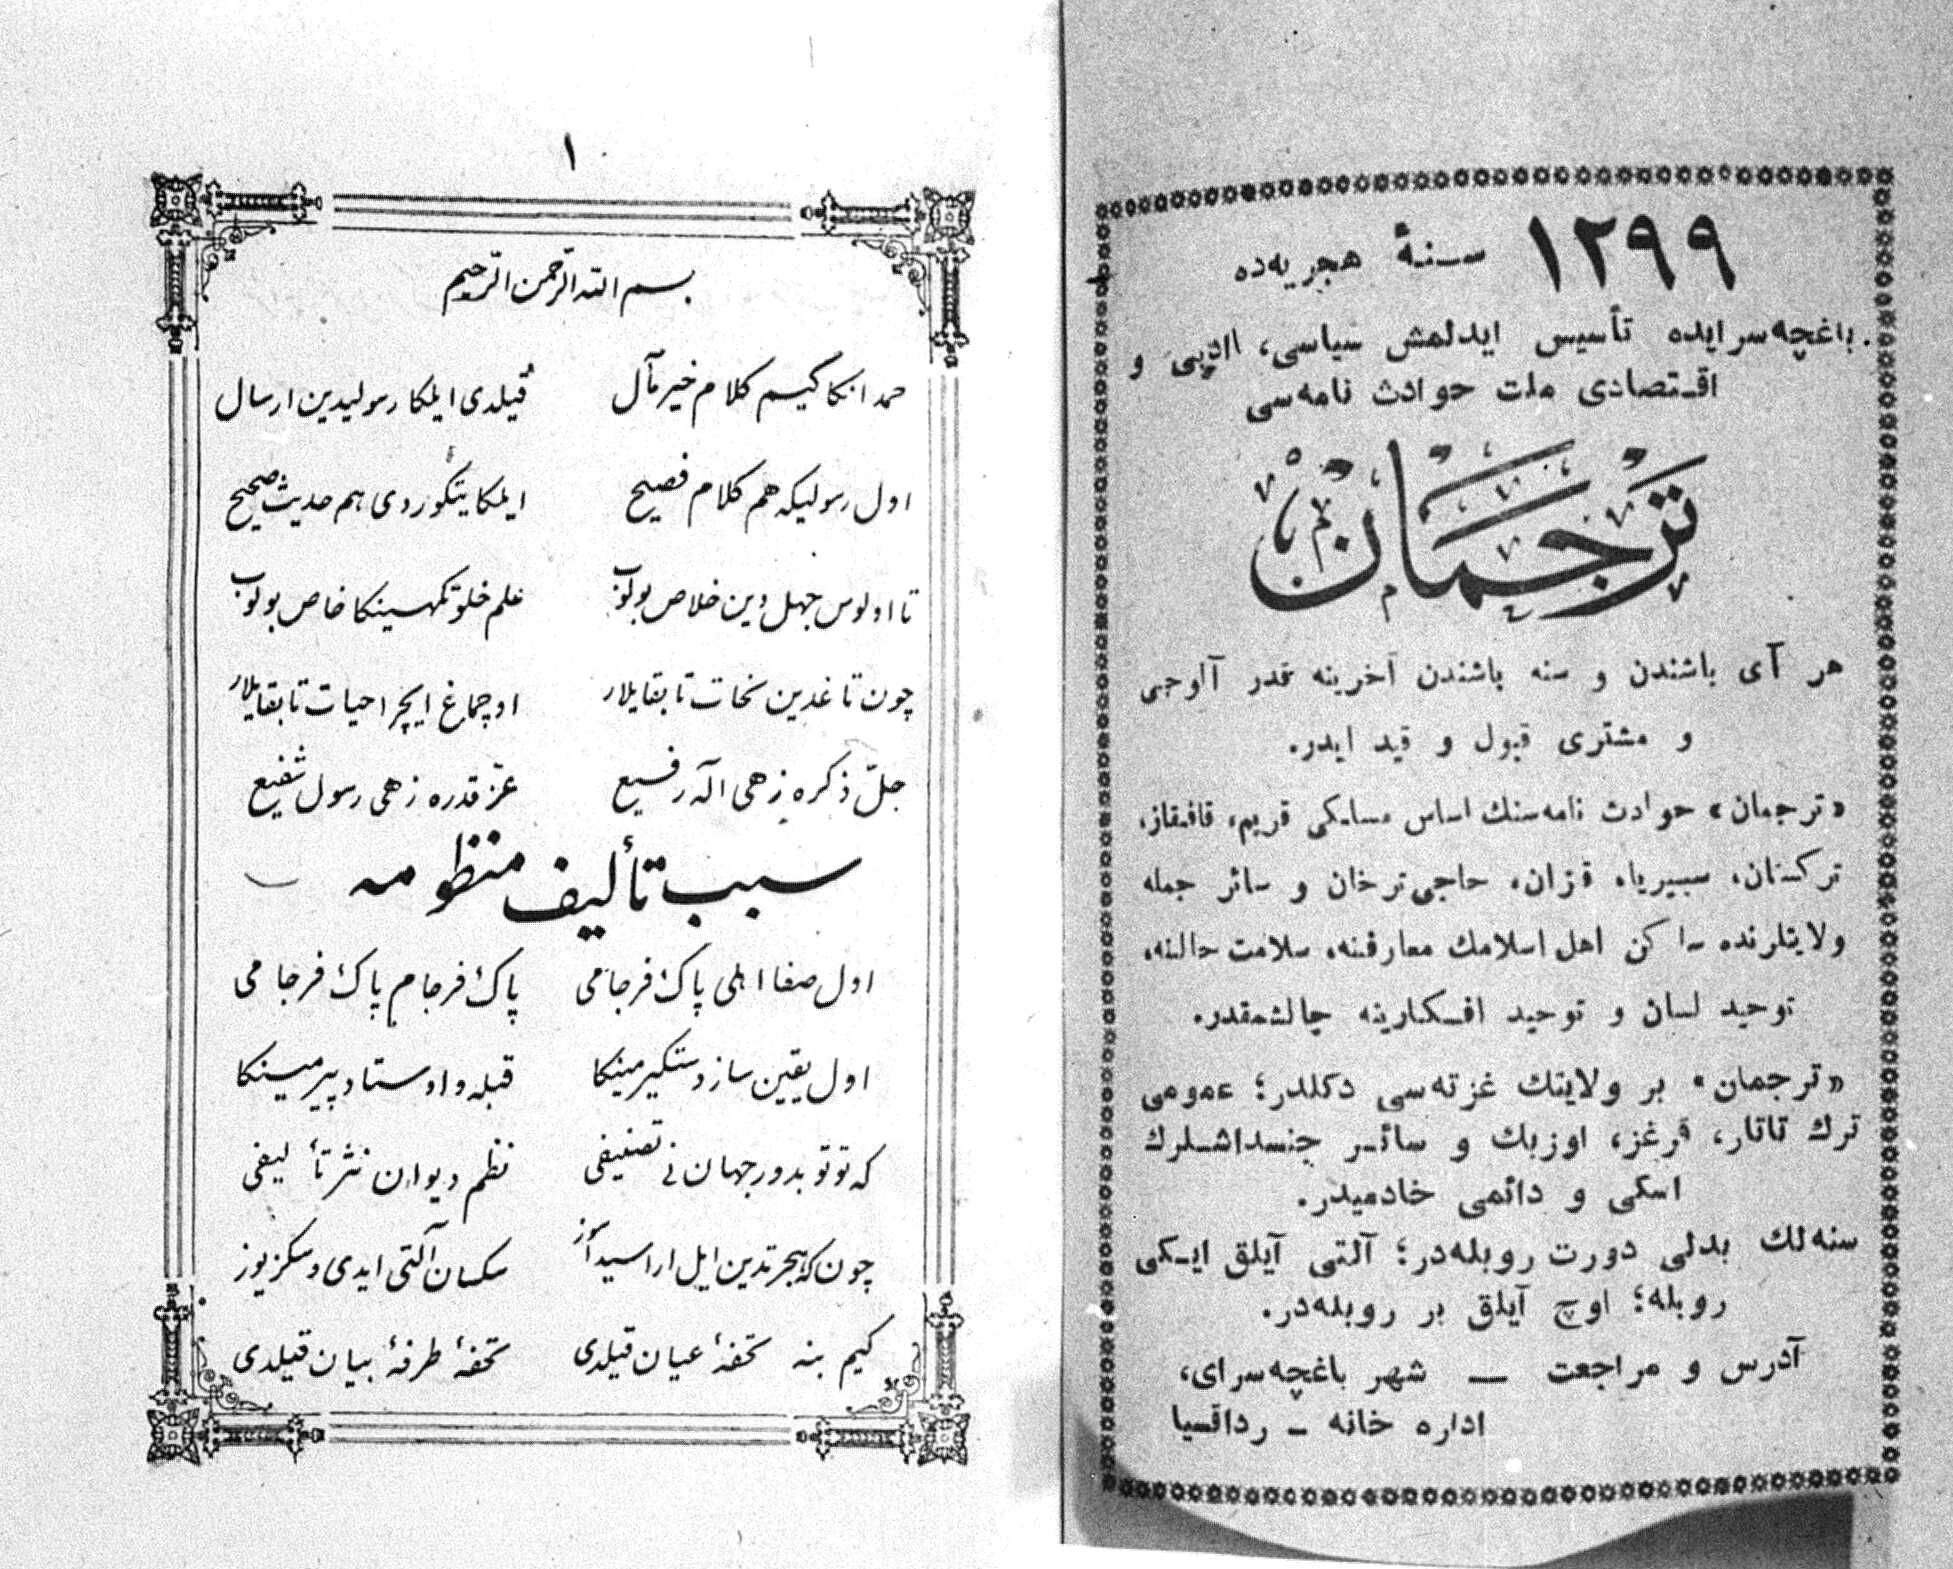 ١٢٩٩ سنهٔ هجریه‌ده
باغچه‌سرایده تأسیس ایدلمش سیاسی، ادبی و
اقتصادی ملت حوادث نامه‌سی
ترجمان
هر آی باشندن و سنه باشندن آخرینه قدر آلوجی
و مشتری قبول و قید ایدر.
«ترجمان» حوادث نامه‌سنك اساس مسلكی قریم، قافقاز،
تركستان، سیبیریا، قزان، حاجی‌ترخان و سائر جمله
ولایتلرنده ساكن اهل اسلامك معارفنه، سلامت حالنه،
توحید لسان و توحید افكارینه چالشمقدر.
«ترجمان» بر ولایتك غزته‌سی دكلدر؛ عمومی
ترك تاتار، قرغز، اوزبك و سائر جنسداشلرك
اسكی و دائمی خادمیدر.
سنه‌لك بدلی دورت روبله‌در؛ آلتی آیلق ایكی
روبله؛ اوچ آیلق بر روبله‌در.
آدرس و مراجعت — شهر باغچه‌سرای،
اداره خانه - رداقسیا
١
بسم الله الرحمن الرحیم
حمد انكا كیم كلام خیر مآل قیلدی ایلكا رسولیدین ارسال
اول رسولیكه هم كلام فصیح ایلكا یتكوردی هم حدیث صحیح
تا اولوس جهل دین خلاص بولوب علم خلوتكهینكا خاص بولوب
چون تاغدین نجات تابقایلار اوچماغ ایچرا حیات تابقایلار
جلّ ذكره زهی اله رفیع عزّ قدره زهی رسول شفیع
سبب تألیف منظومه
اول صفا اهلی پاك فرجامی پاك فرجام پاك فرجامی
اول یقین ساز دستكیر مینكا قبله و اوستاد پیر مینكا
كه توتوبدور جهان نی تصنیفی نظم دیوان نثر تألیفی
چون كه هجرتدین ایل اراسیدا سوز سكسان آلتی ایدی و سكز یوز
كیم بنه تحفهٔ عیان قیلدی تحفهٔ طرفهٔ بیان قیلدی